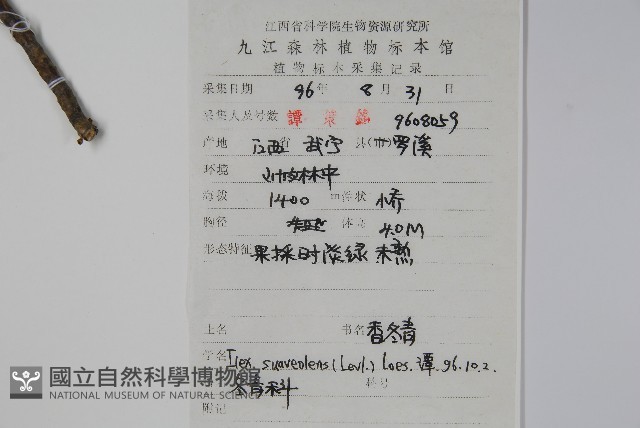 江西省科学院生物资源研究所
九江森林植物标本馆
植物标本采集记录
采集日期 96年 8月 31日
采集人及号数 譚 9608059
产地 江西省 武宁县(市)罗溪
环境 林中
海拔 1400 m 性状 小乔
胸径 体高 4.0M
形态特征 果採时淡绿 未熟
土名 书名 香冬青
学名 Ilex suaveolens (Levl.) Loes. 譚. 96.10.2.
冬青科 科号
附记
國立自然科學博物館
NATIONAL MUSEUM OF NATURAL SCIENCE